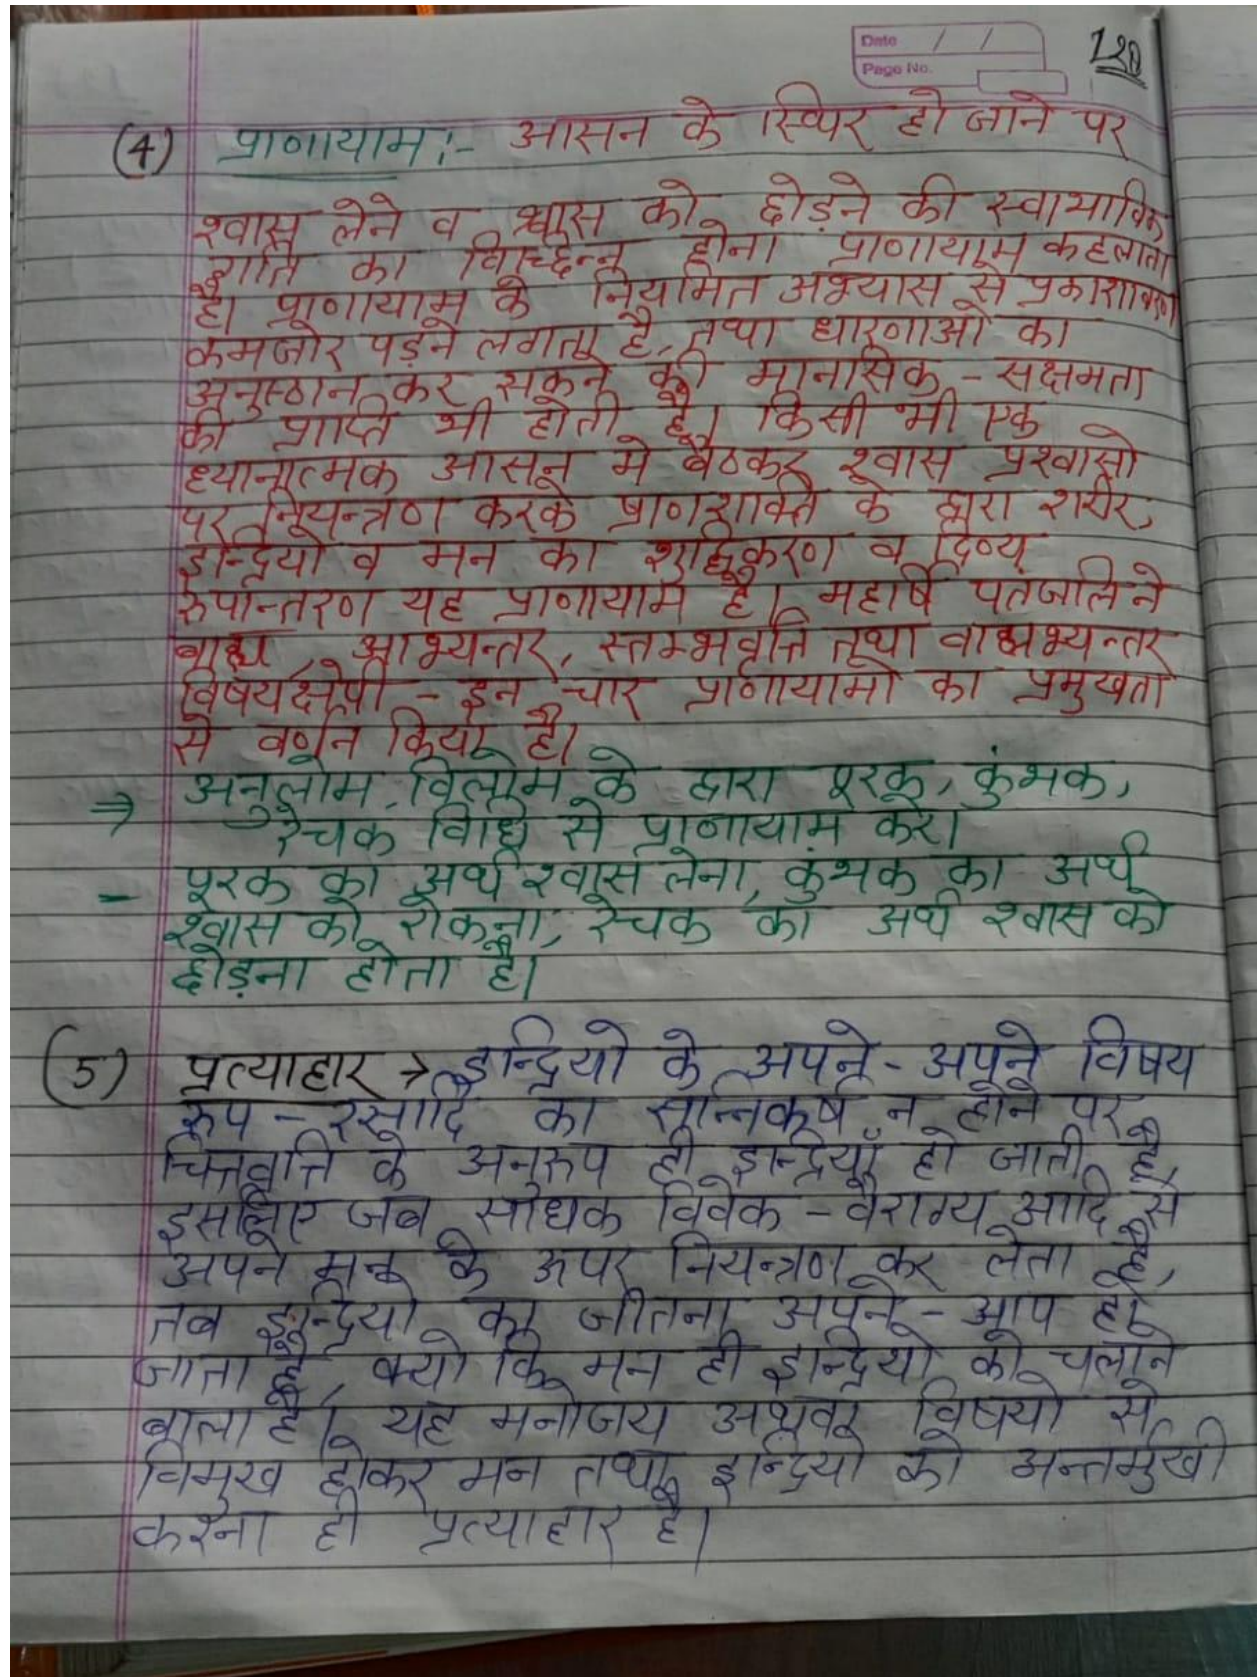 Date / /
Page No.
(4) प्राणायाम :- आसन के स्थिर हो जाने पर
श्वास लेने व श्वास को छोड़ने की स्वाभाविक
गति का विच्छिन्न होना प्राणायाम कहलाता
है। प्राणायाम के नियमित अभ्यास से प्रकाशावरण
कमजोर पड़ने लगता है, तथा धारणाओं का
अनुष्ठान कर सकने की मानसिक - सक्षमता
की प्राप्ति भी होती है। किसी भी एक
ध्यानात्मक आसन मे बैठकर श्वास प्रश्वासो
पर नियन्त्रण करके प्राणशक्ति के द्वारा शरीर,
इन्द्रियो व मन का शुद्धिकरण व दिव्य
रुपान्तरण यह प्राणायाम है। महार्षि पतंजलि ने
बाह्य, आभ्यन्तर, स्तम्भवृत्ति तथा वाह्यभ्यन्तर
विषयक्षेपी - इन चार प्राणायामो का प्रमुखता
से वर्णन किया है।
⇒ अनुलोम, विलोम के द्वारा पूरक, कुंभक,
रेचक विधि से प्राणायाम करे।
- पूरक का अर्थ श्वास लेना, कुंभक का अर्थ
श्वास को रोकना, रेचक का अर्थ श्वास को
छोड़ना होता है।
(5) प्रत्याहार → इन्द्रियो के अपने - अपने विषय
रुप - रसादि का सन्निकर्ष न होने पर
चित्तवृत्ति के अनुरुप ही इन्द्रियाँ हो जाती है,
इसलिए जब साधक विवेक - वैराग्य आदि से
अपने मन के ऊपर नियन्त्रण कर लेता है,
तब इन्द्रियो का जीतना अपने - आप हो
जाता है, क्यो कि मन ही इन्द्रियो को चलाने
बाला है। यह मनोजय विषयो से
विमुख होकर मन तथा इन्द्रियो को अन्तर्मुखी
करना ही प्रत्याहार है।